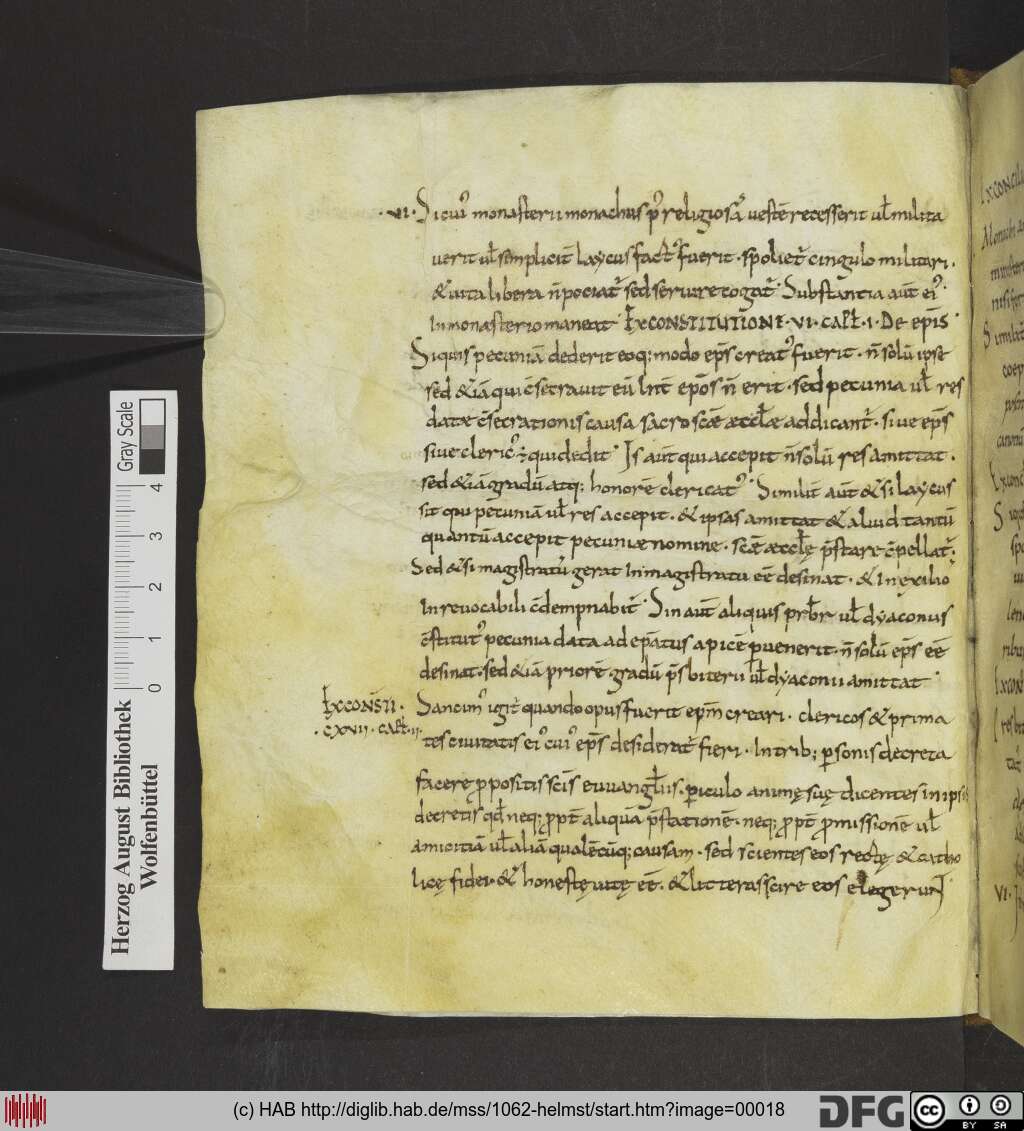 ·VI· Si cui᾽ monasterii monachus p᾽ religiosā vestē recesserit ul̄ milita
verit ul̄ simpliciť laycus fact᾽ fuerit · spoliet᷑ cingulo militari ·
& vita libera n̄ pociat᷑ sed servire cogat᷑ · Substantia aut̄ ei᾽
In monasterio maneat · EX CONSTITUTIONE · VI · CAPL̄ · I · DE EPĪS ·
Siquis pecuniā dederit eoq; modo ep̄s creat᾽ fuerit · n̄ solū ipse
sed & iā qui c̄secravit eū Int̄ ep̄os n̄ erit · sed pecunia ul̄ res
datae c̄secrationis causa sacro sc̄æ æccl̄æ addicant᷑ · sive ep̄s
sive cleric᾽ ÷ qui dedit · Is aut̄ qui accepit n̄ solū res amittat ·
sed & iā gradū atq; honorē clericat᾽ · Similiť aut̄ & si laycus
sit qui pecuniā ul̄ res accepit · & ipsas amittat & aliud tantū
quantū accepit pecuniæ nomine · sc̄æ æccl̄ę p̄stare c̄pellat᷑ ·
Sed & si magistratū gerat In magistratu eē desinat · & In exilio
In revocabili c̄dempnabit᷑ · Sin aut̄ aliquis prb̄r ul̄ dyaconus
c̄stitut᾽ pecunia data ad ep̄atus apicē pvenerit · n̄ solū ep̄s eē
desinat · sed & iā priorē gradū p̄sbiterii ul̄ dyaconii amittat ·
EX CONSTI ·
· CXXVII · CAPL̄ · II ·
Sancim᾽ igit᷑ quando opus fuerit ep̄m creari · clericos & prima
tes civitatis ei᾽ cui᾽ ep̄s desiderat᷑ fieri · In trib; psonis decreta
facere ppositis sc̄is euuangl̄iis · piculo animę suę dicentes in ipsis
decretis qd̄ neq; ppt̄ aliquā p̄stationē · neq; ppt̄ pmissionē ul̄
amicitiā ul̄ aliā qualēcūq; causam · sed scientes eos rectę & catho
licę fidei · & honestę vitę eē · & litteras scire eos elegerunt ·
Herzog August Bibliothek
Wolfenbüttel
Gray Scale
0 1 2 3 4
(c) HAB http://diglib.hab.de/mss/1062-helmst/start.htm?image=00018
DFG
cc BY SA